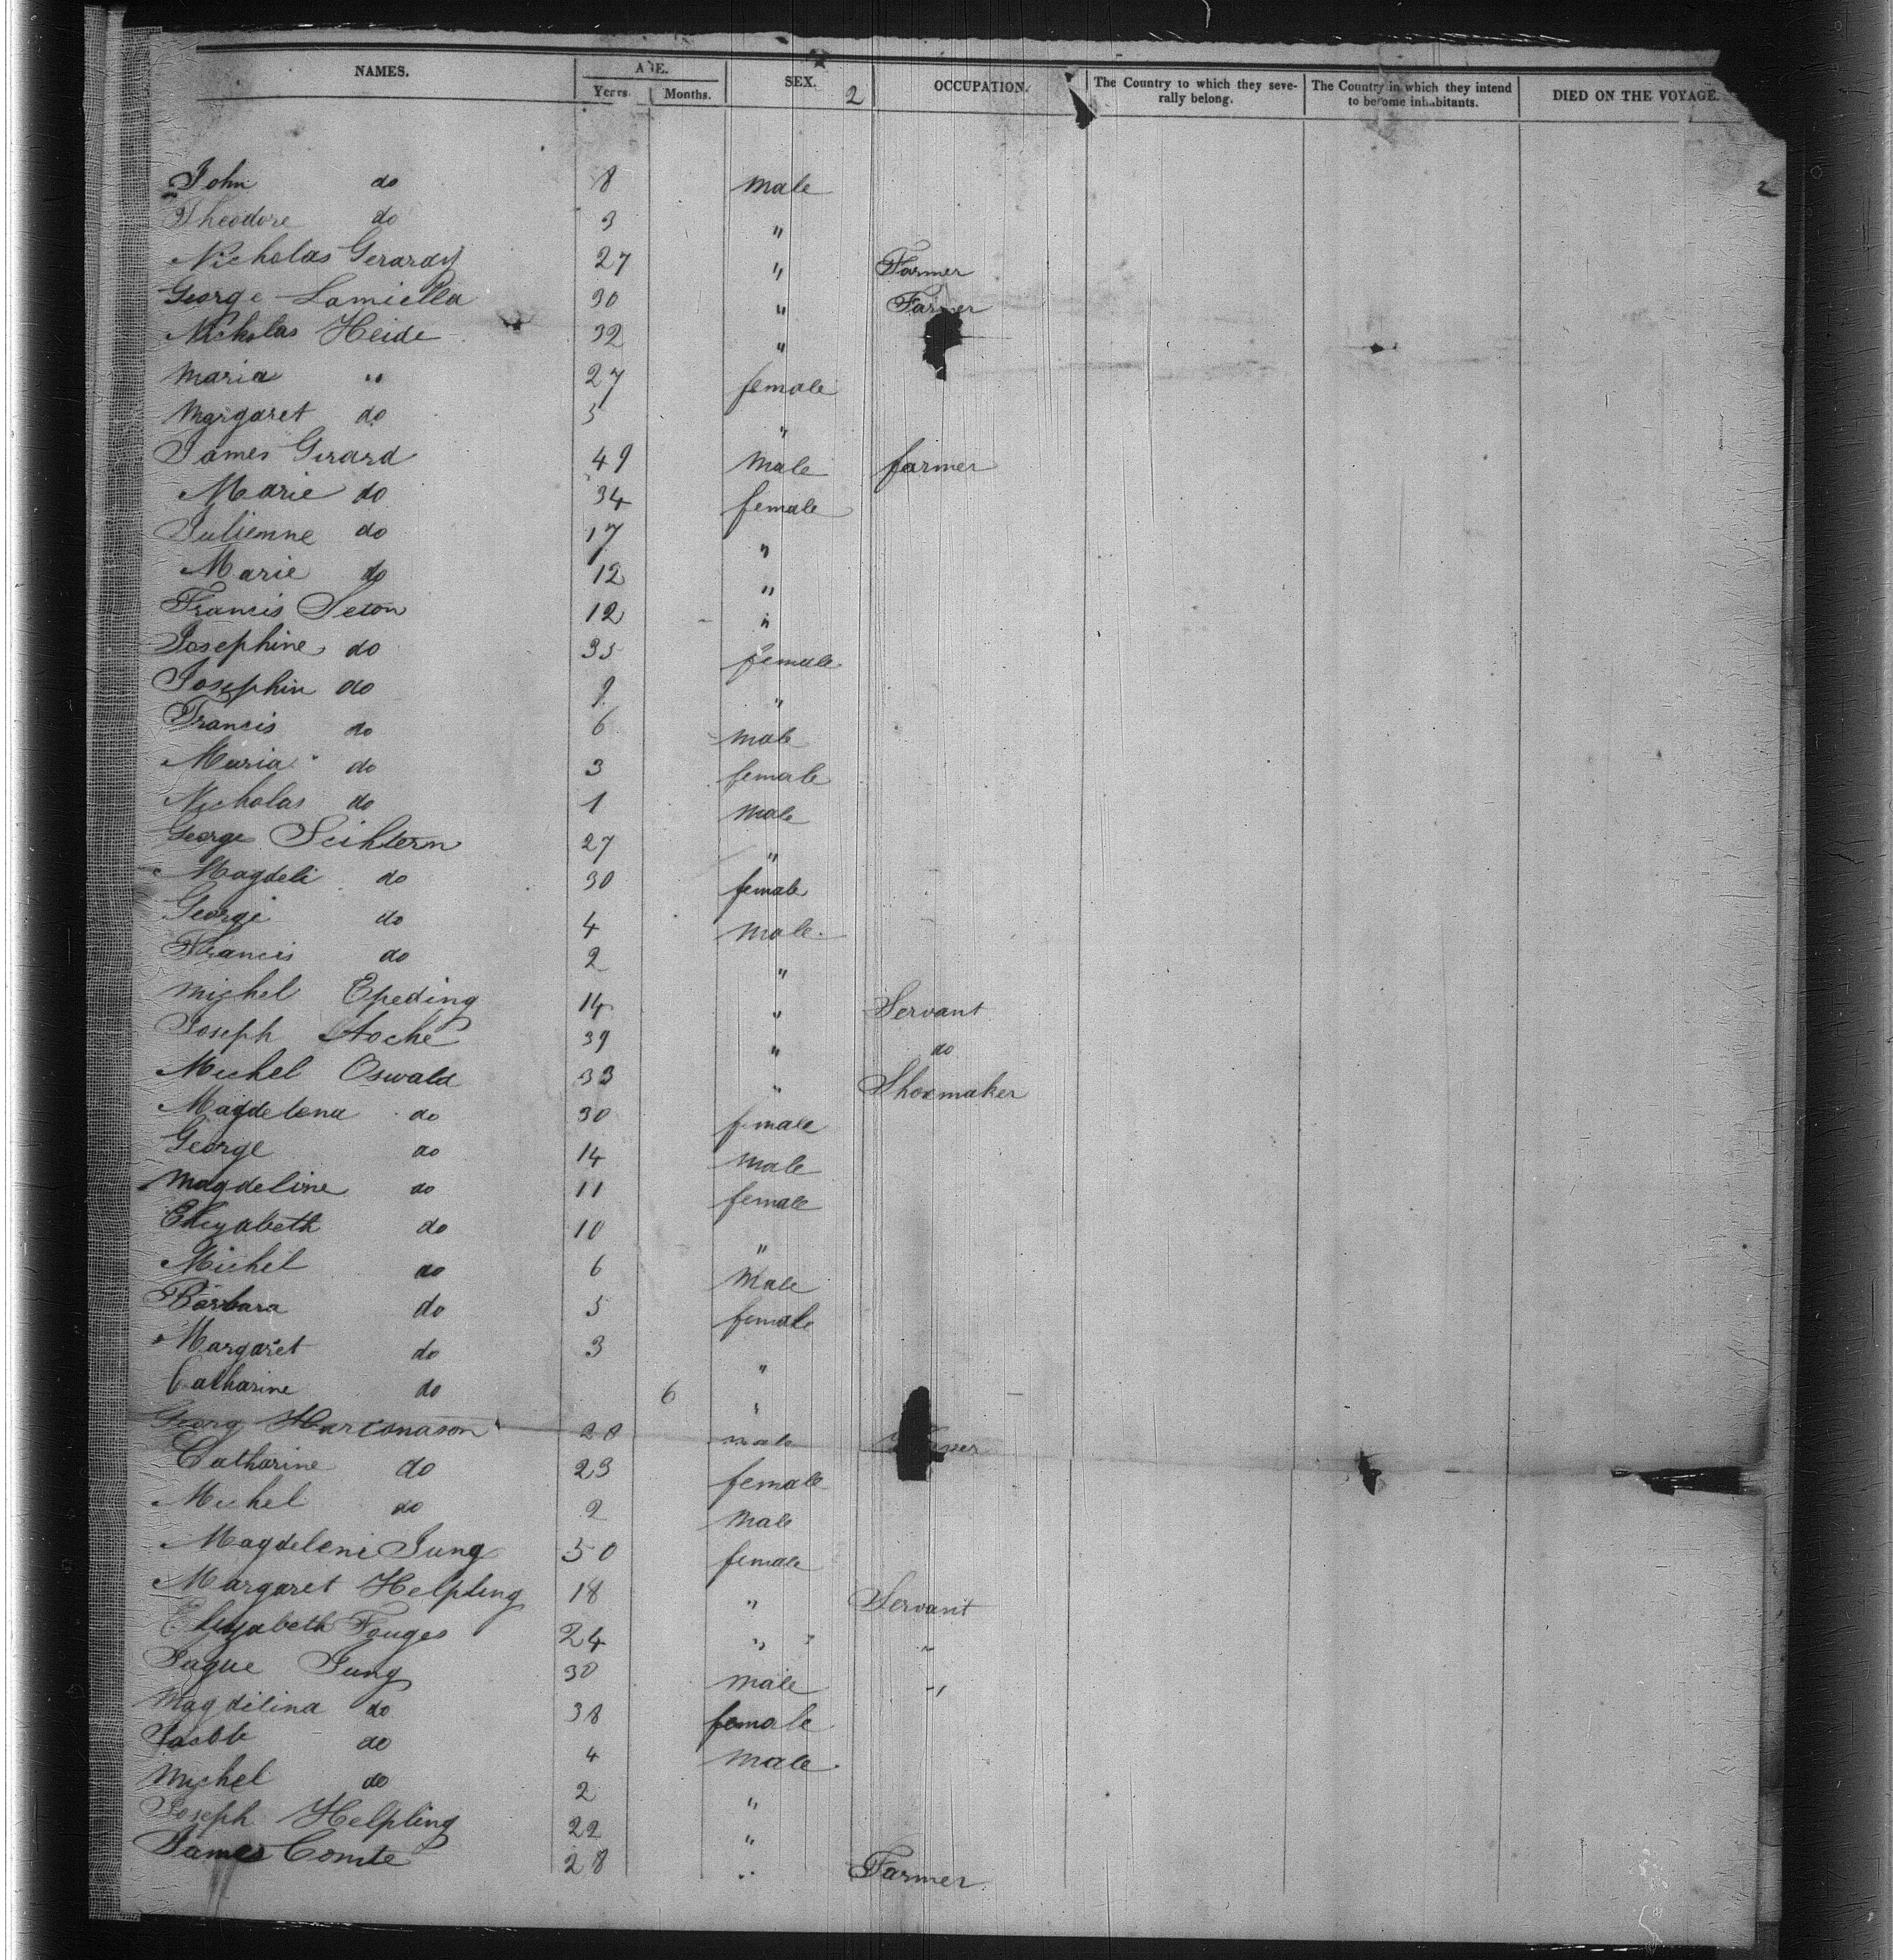 NAMES. AGE. SEX. OCCUPATION. The Country to which they seve- The Country in which they intend DIED ON THE VOYAGE.
Years. Months. 2 rally belong. to become inhabitants.
2
John do 8 male
Theodore do 3 "
Nicholas Gerardy 27 " Farmer
George Lamiella 30 " Farmer
Nicholas Heide 32 "
Maria " 27 female
Margaret do 5 "
James Girard 49 Male farmer
Marie do 34 female
Julienne do 17 "
Marie do 12 "
Francis Seton 12 "
Josephine do 35 female
Josephin do 9 "
Francis do 6 male
Maria do 3 female
Nicholas do 1 male
George Seihtern 27 "
Magdeli do 30 female
George do 4 male
Francis do 2 "
Mighel Epeding 14 " Servant
Joseph Hoche 39 " do
Michel Oswald 33 " Shoemaker
Magdelena do 30 female
George do 14 male
Magdeline do 11 female
Elizabeth do 10 "
Michel do 6 Male
Barbara do 5 female
Margaret do 3 "
Catharine do 6 "
Georg 28 male
Catharine do 23 female
Michel do 2 male
Magdeleni Jung 50 female
Margaret Helpling 18 " Servant
Elizabeth Fouges 24 " "
Jaque Jung 30 male "
Magdilina do 38 female
Jacob do 4 male
Mighel do 2 "
Joseph Helpling 22 "
James Comte 28 " Farmer